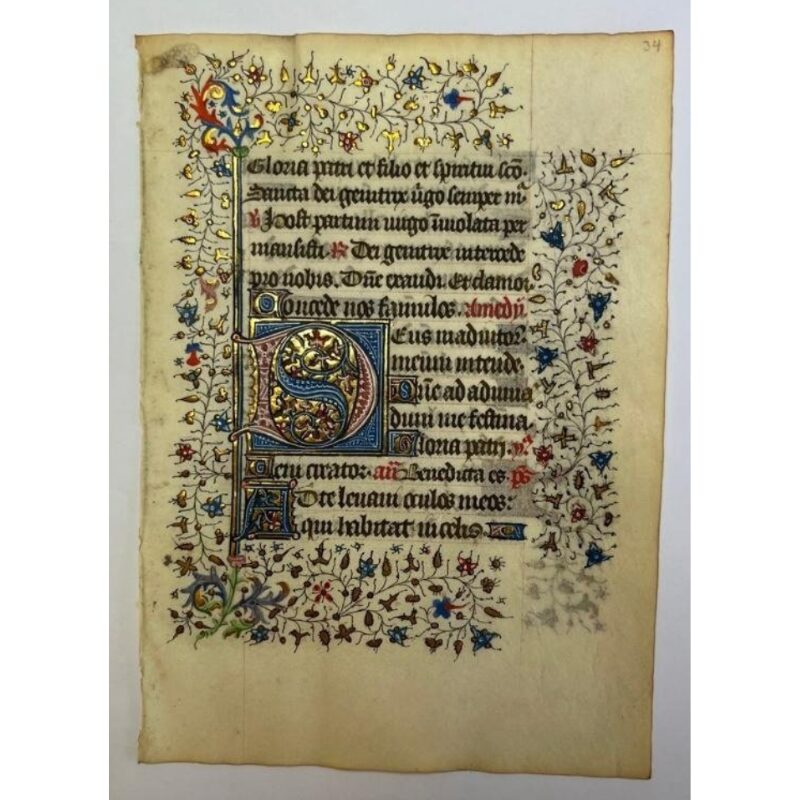 34
Gloria patri et filio et spiritui scō.
Sancta dei genitrix v̄go semper m̄
V Post partum uirgo īuiolata per
mansisti. R Dei genitrix intercede
pro nobis. Dn̄e exaudi. Et clamor
Concede nos famulos. A medy.
Deus in adiutor.
meum intende.
Dn̄e ad adiuua
dum me festina.
Gloria patri. ym̄
Mem creator. an̄ Benedicta es. ps̄
Ad te leuaui oculos meos:
qui habitat in celis.